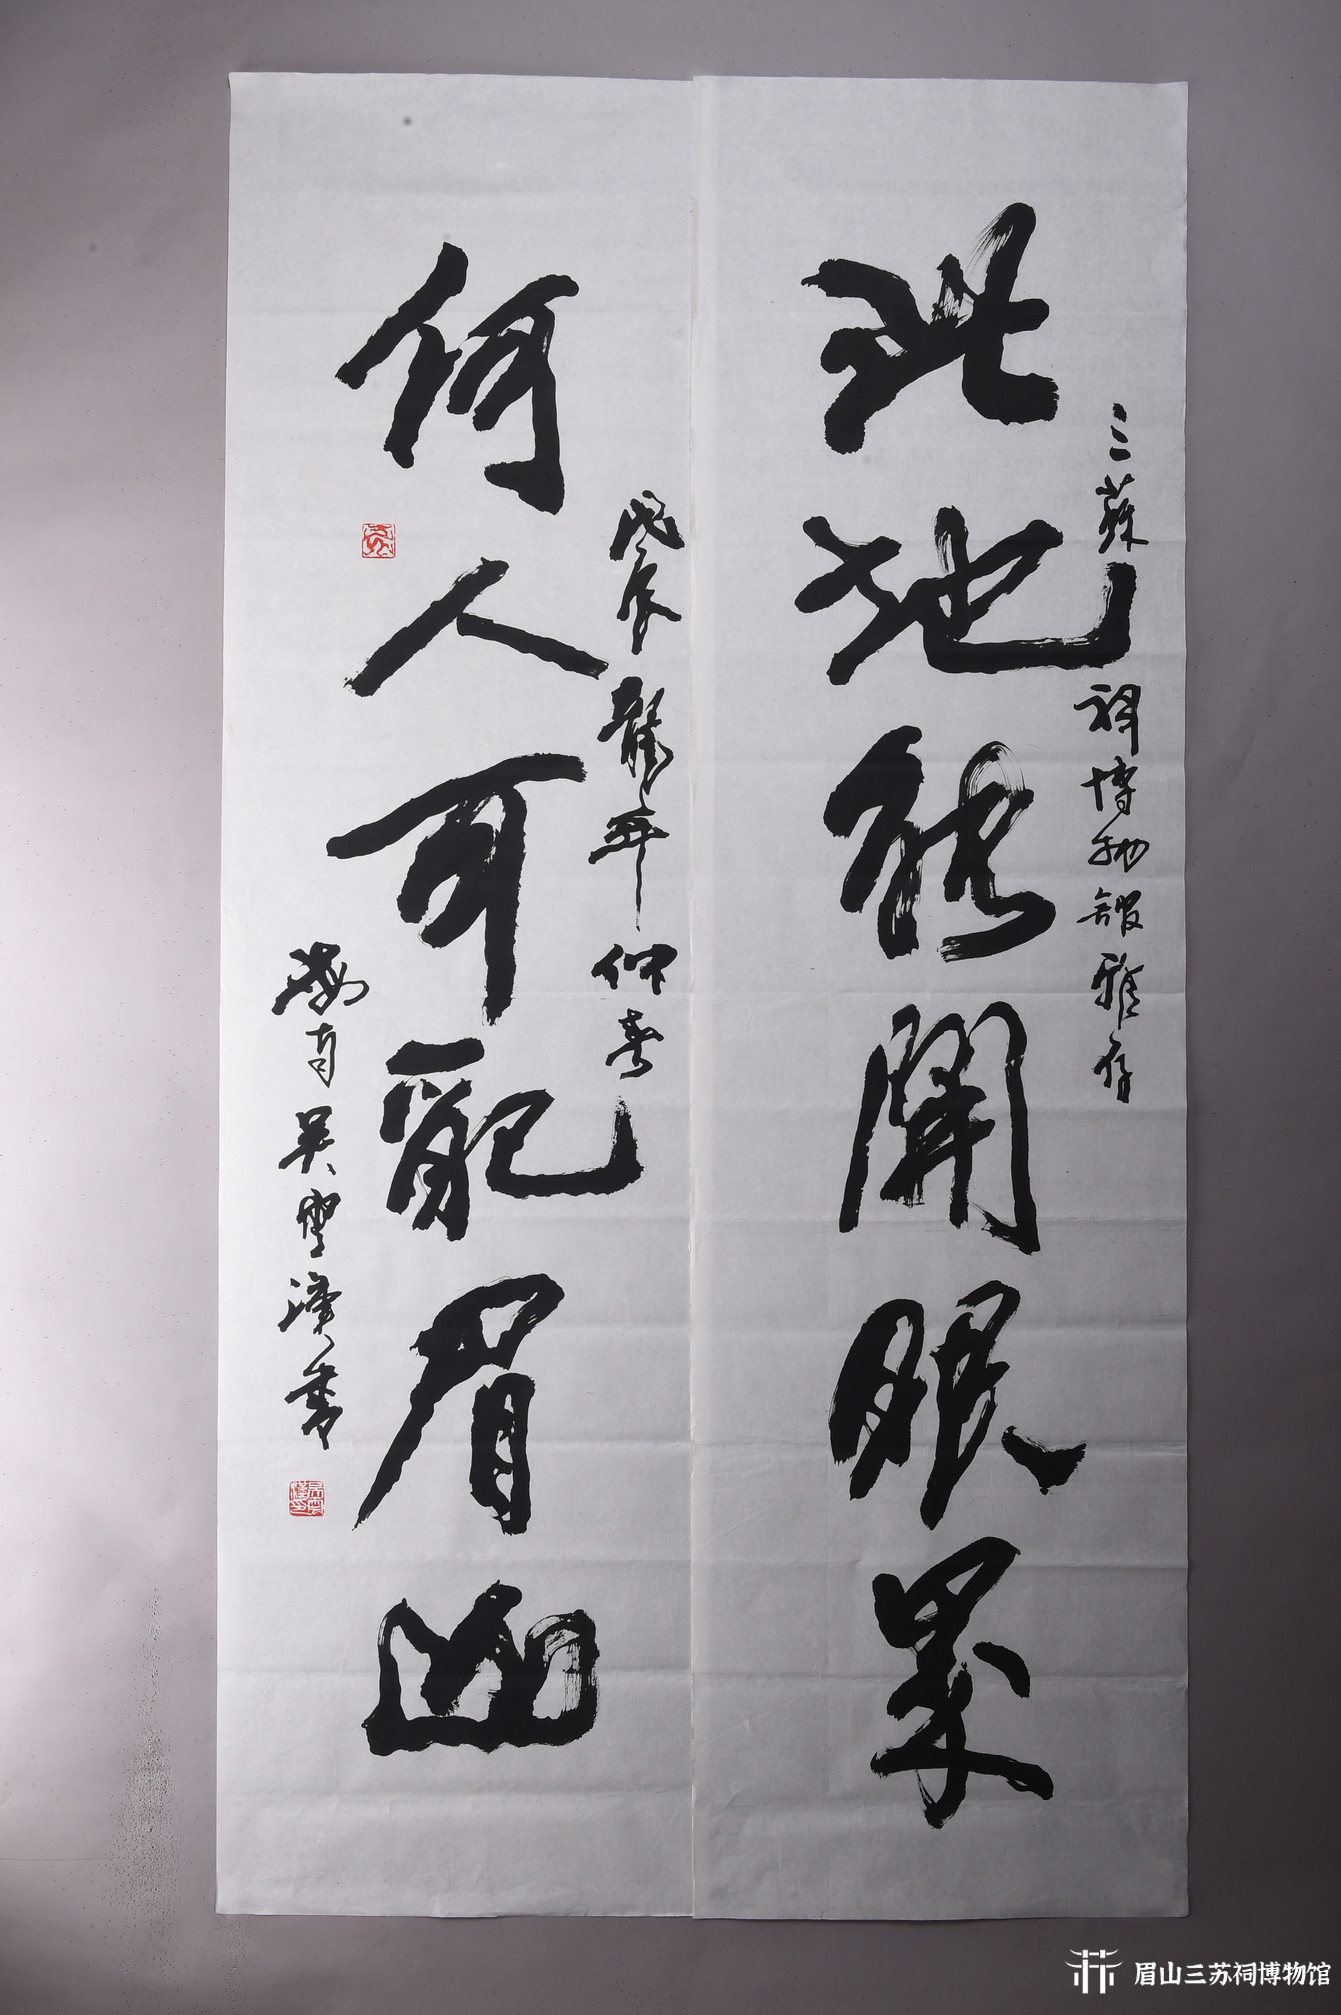 此地能開眼界
三蘇祠博物館雅存
何人可配眉山
戊辰龍年仲春
海南吳雲漢書
眉山三苏祠博物馆